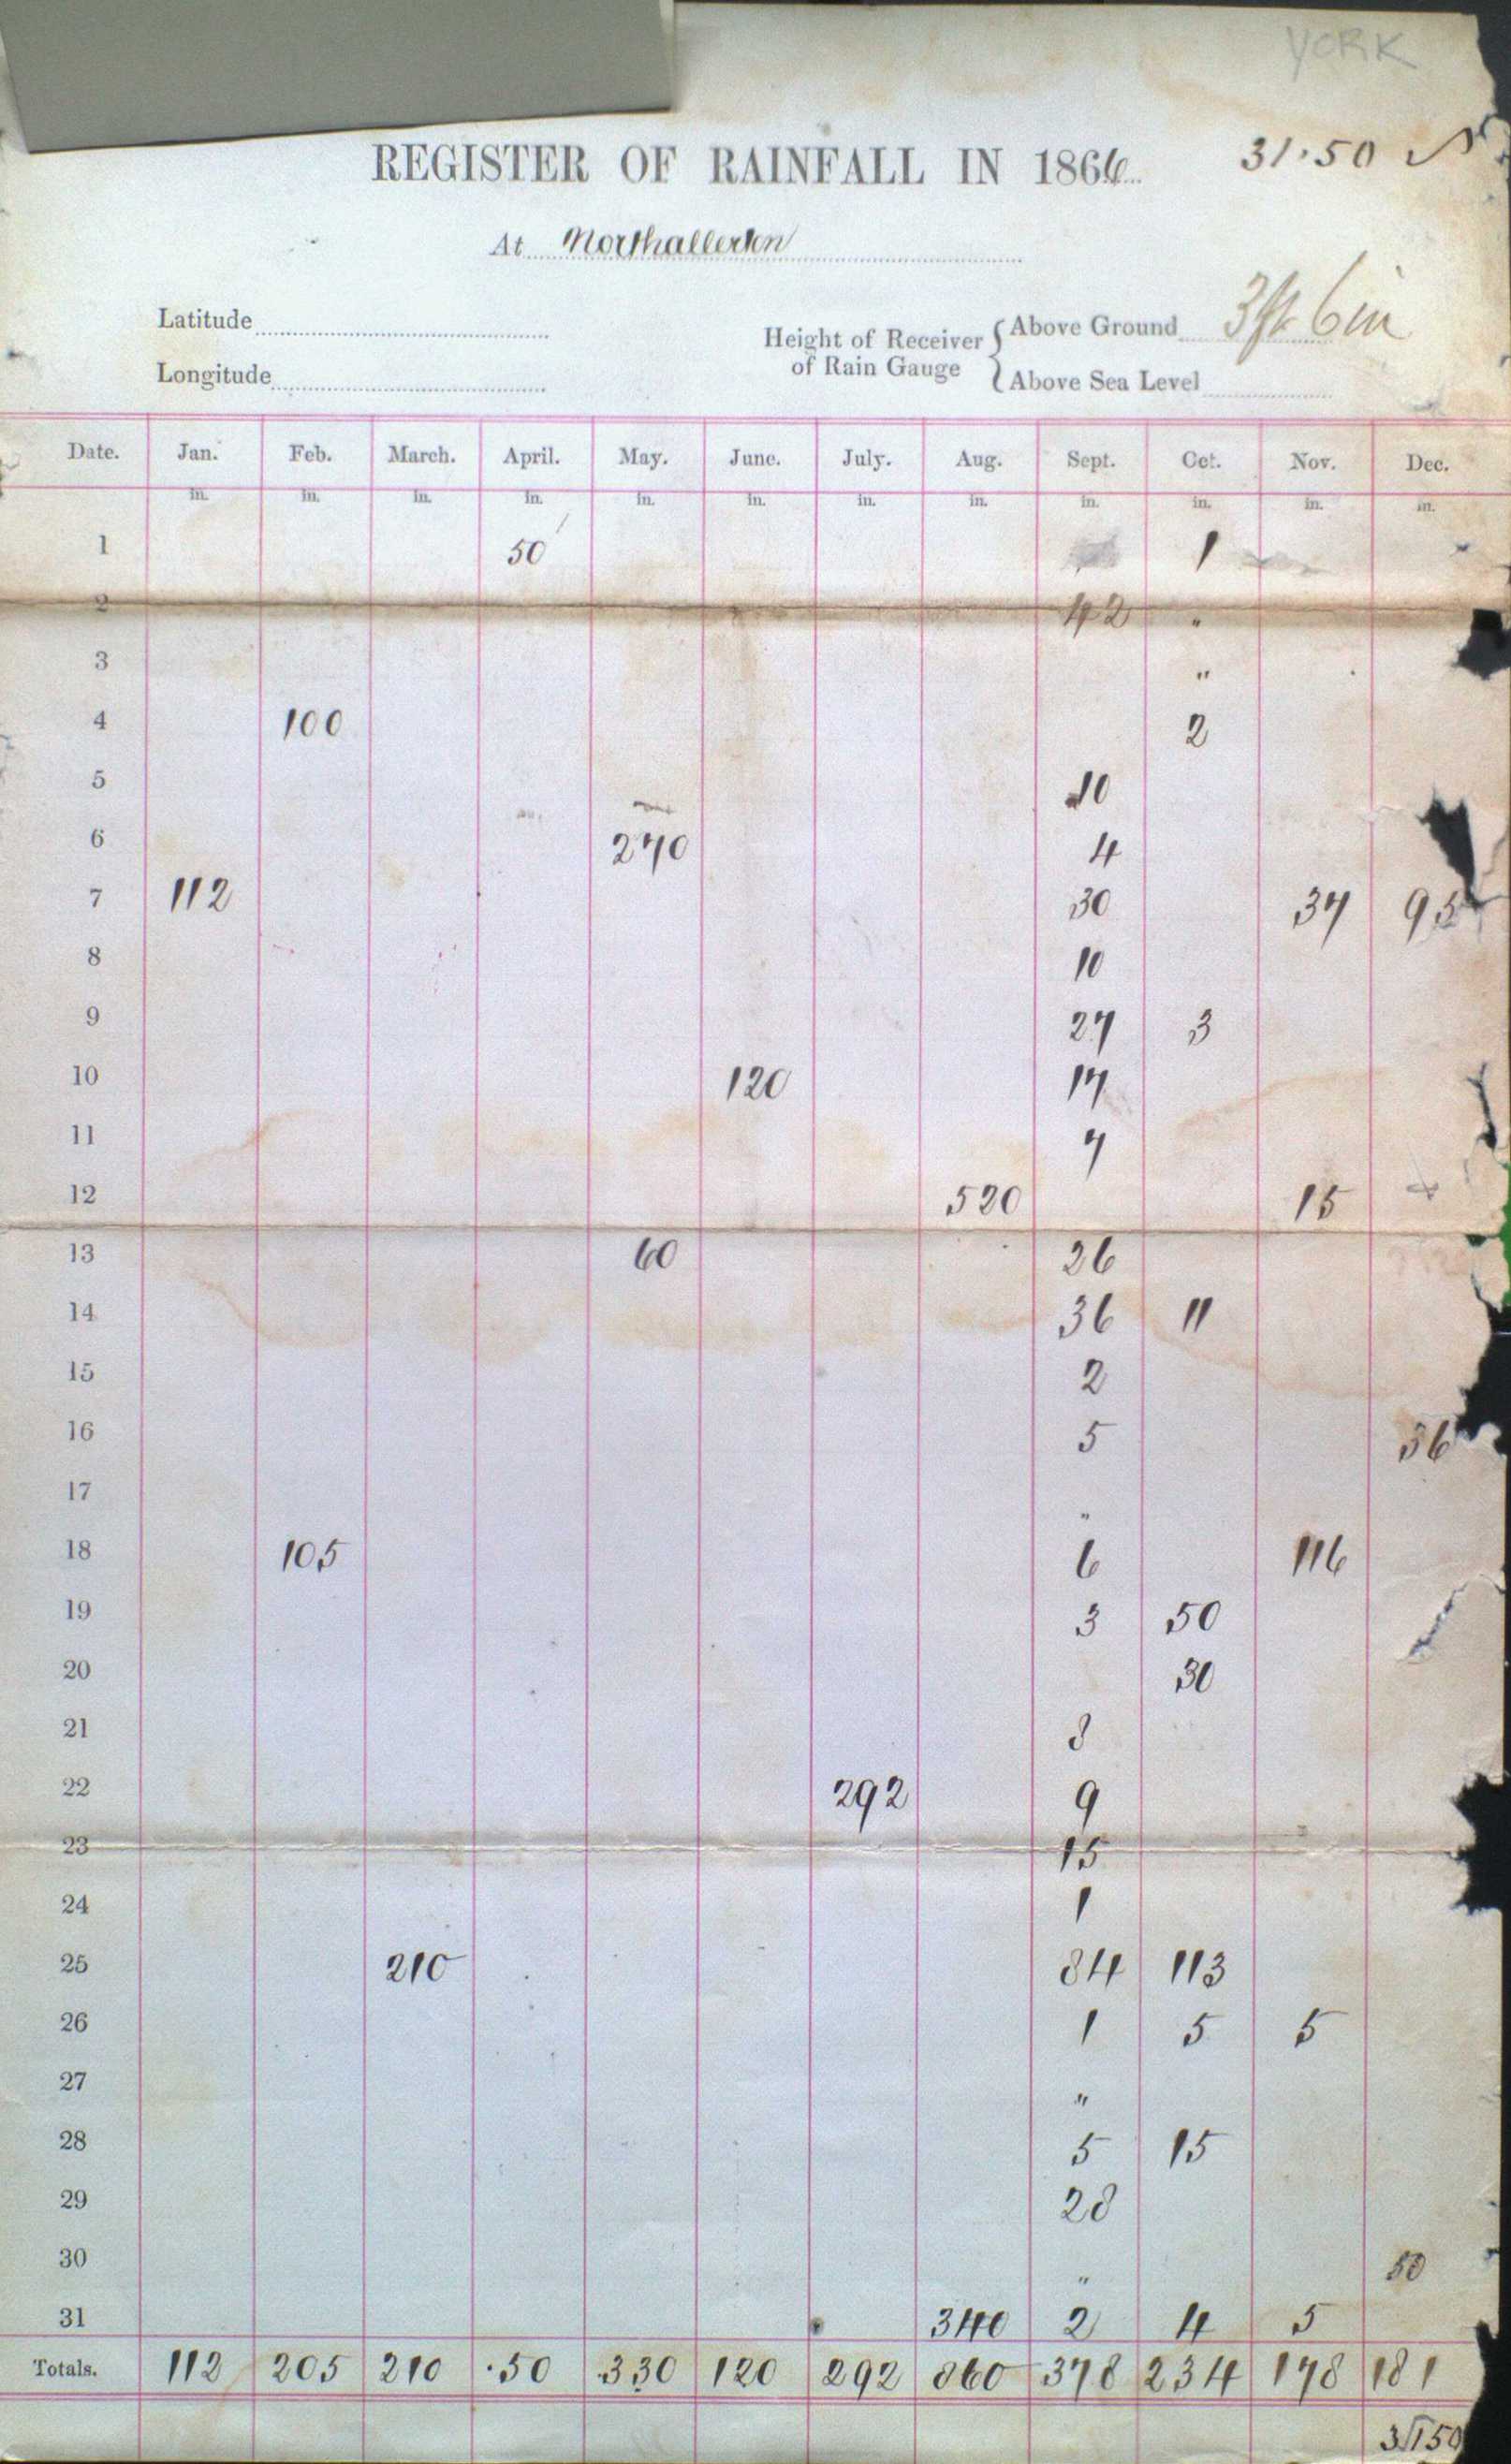 YORK
REGISTER OF RAINFALL IN 1866 31.50
At Northallerton
Latitude
Longitude
Height of Receiver of Rain Gauge
Above Ground 3ft 6in
Above Sea Level
Date. Jan. Feb. March. April. May. June. July. Aug. Sept. Oct. Nov. Dec.
in. in. in. in. in. in. in. in. in. in. in. in.
1 50 1
2 42 "
3 "
4 100 2
5 10
6 270 4
7 112 30 37 95
8 10
9 27 3
10 120 17
11 7
12 520 15
13 60 26
14 36 11
15 2
16 5 36
17 "
18 105 6 116
19 3 50
20 30
21 8
22 292 9
23 15
24 1
25 210 84 113
26 1 5 5
27 "
28 5 15
29 28
30 " 50
31 340 2 4 5
Totals. 112 205 210 .50 .330 120 292 860 378 234 178 181
3150